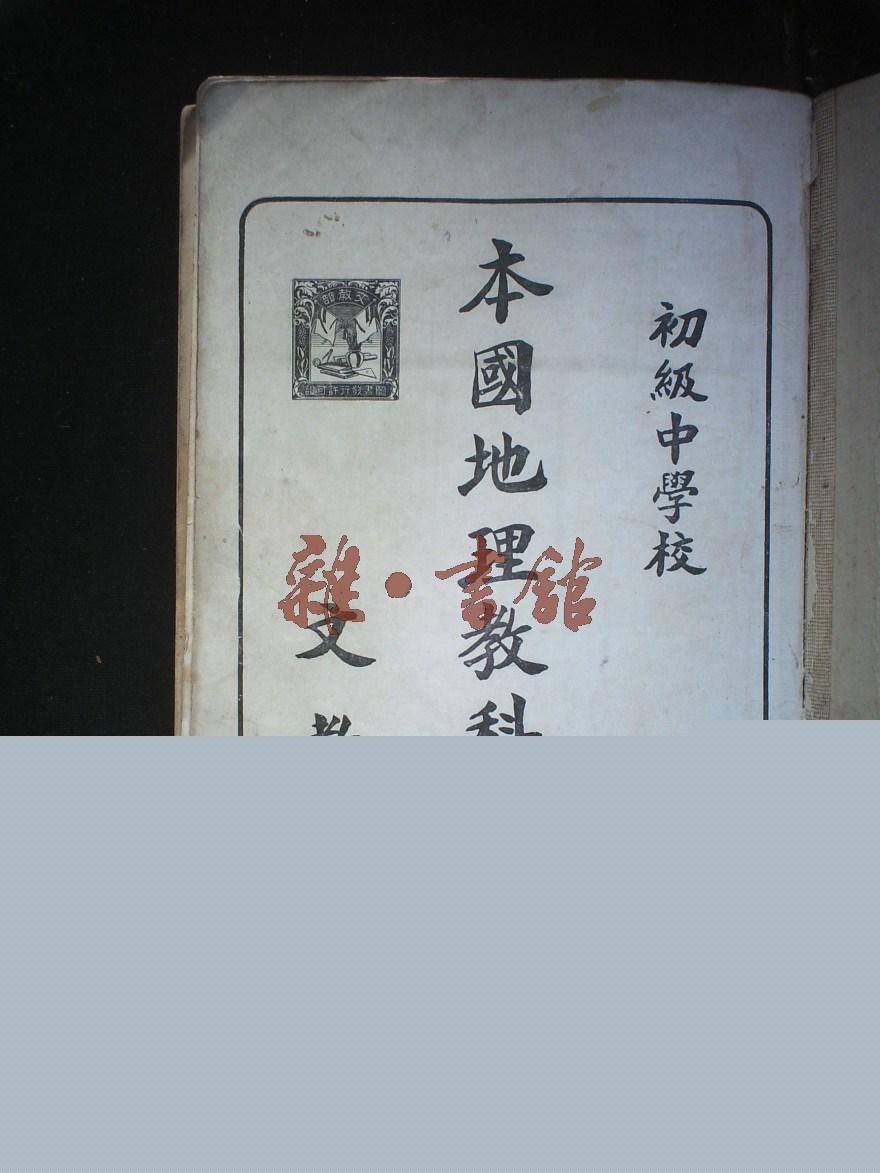 初級中學校
本國地理教科
文教
文教部
圖書發行許可證
雜·書館